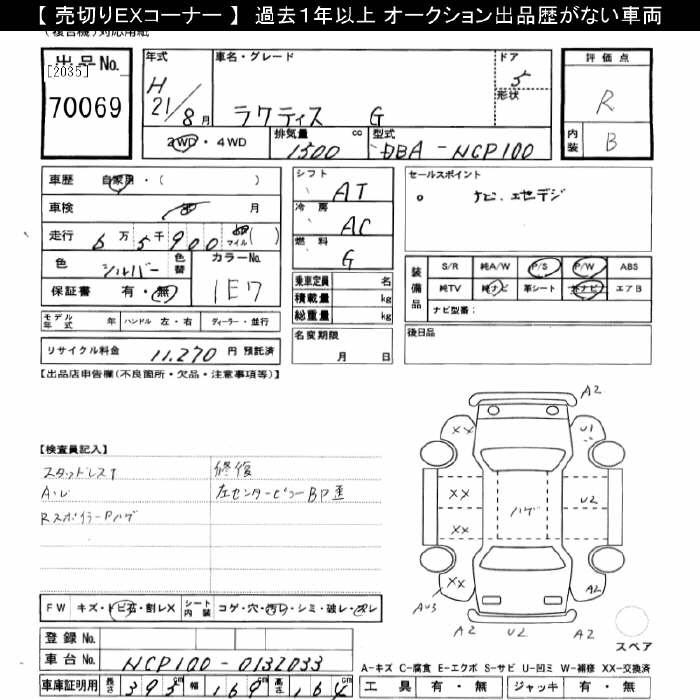 【 売切りEXコーナー 】 過去１年以上 オークション出品歴がない車両
(複合機)対応用紙
出品No. [2035]
70069
年式 H 21/8月
車名・グレード ラクティス G
ドア 5
形状
2WD・4WD
排気量 1500 cc
型式 DBA-NCP100
評価点 R
内装 B
車歴 自家用・( )
車検 月
走行 6万5千900 マイル( )
色 シルバー 色替 カラーNo. 1E7
保証書 有・無
モデル年式 年 ハンドル 左・右 ディーラー・並行
リサイクル料金 11,270 円 預託済
シフト AT
冷房 AC
燃料 G
乗車定員 名
積載量 kg
総重量 kg
名変期限 月 日
セールスポイント
ナビ、
装備品 S/R 純A/W P/S P/W ABS
純TV 純ナビ 革シート 社ナビ エアB
ナビ型番:
後日品
【出品店申告欄(不良箇所・欠品・注意事項等)】
【検査員記入】
スタッドレス 修復
左センターピラーBP歪
RスポイラーPハゲ
FW キズ・トビ石・割レX シート内装 コゲ・穴・切レ・シミ・破レ・スレ
登録No.
車台No. NCP100-0132033
車庫証明用 長さ 395cm 幅 169cm 高さ 164cm
A2
A2
XX
U1
XX
XX
U2
ハゲ
XX
AU3
A2
A2
U2
A2
スペア
A-キズ C-腐食 E-エクボ S-サビ U-凹ミ W-補修 XX-交換済
工具 有・無 ジャッキ 有・無